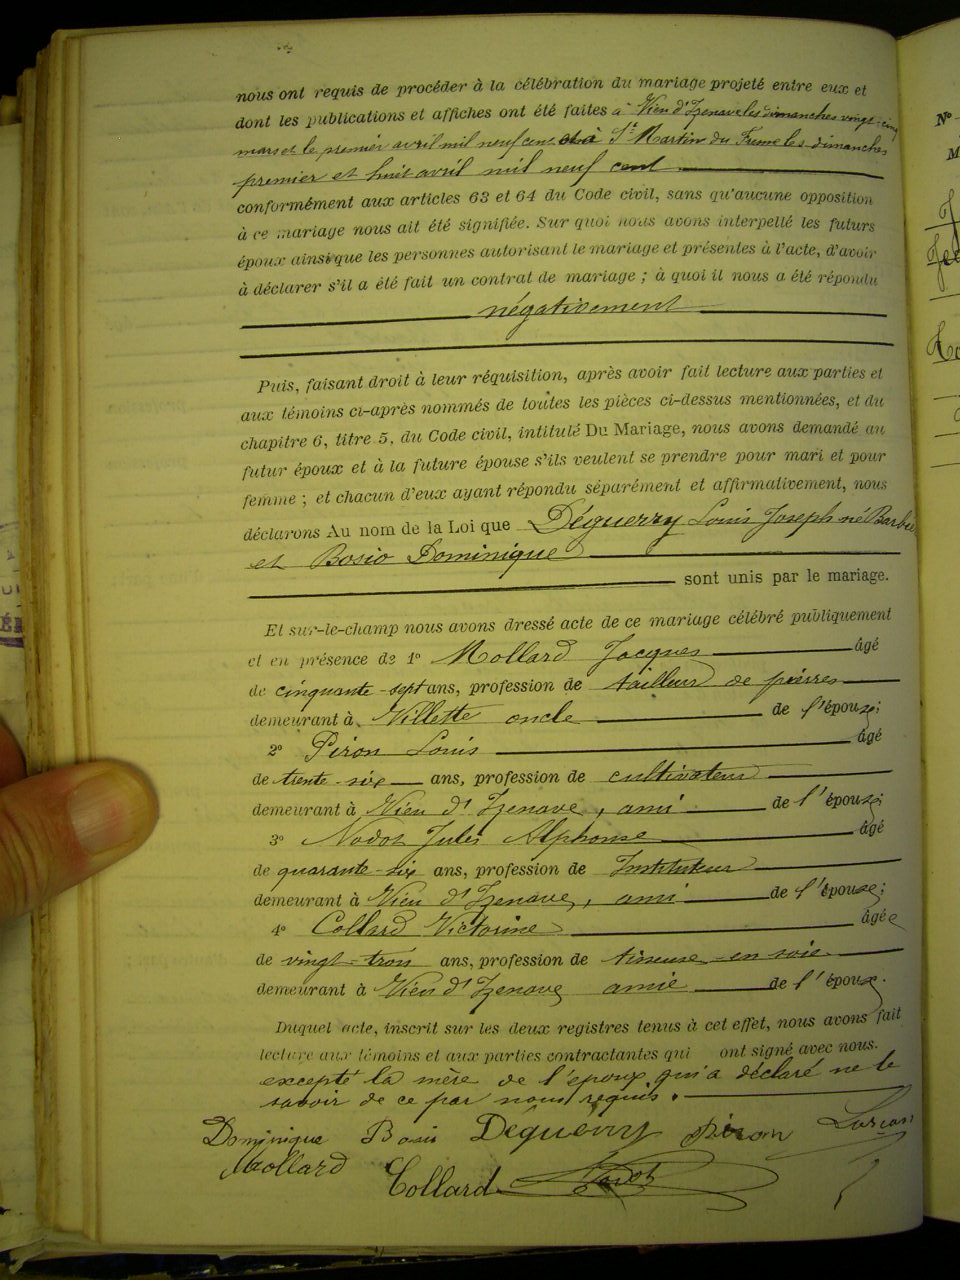 nous ont requis de procéder à la célébration du mariage projeté entre eux et
dont les publications et affiches ont été faites à Vieu d'Izenave les dimanches vingt-cinq
mars et le premier avril mil neuf cent et à St Martin du Frêne les dimanches
premier et huit avril mil neuf cent
conformément aux articles 63 et 64 du Code civil, sans qu'aucune opposition
à ce mariage nous ait été signifiée. Sur quoi nous avons interpellé les futurs
époux ainsi que les personnes autorisant le mariage et présentes à l'acte, d'avoir
à déclarer s'il a été fait un contrat de mariage ; à quoi il nous a été répondu
négativement
Puis, faisant droit à leur réquisition, après avoir fait lecture aux parties et
aux témoins ci-après nommés de toutes les pièces ci-dessus mentionnées, et du
chapitre 6, titre 5, du Code civil, intitulé Du Mariage, nous avons demandé au
futur époux et à la future épouse s'ils veulent se prendre pour mari et pour
femme ; et chacun d'eux ayant répondu séparément et affirmativement, nous
déclarons Au nom de la Loi que Déguerry Louis Joseph né Barbier
et Bosio Dominique
sont unis par le mariage.
Et sur-le-champ nous avons dressé acte de ce mariage célébré publiquement
et en présence de 1º Mollard Jacques âgé
de cinquante-sept ans, profession de tailleur de pierres
demeurant à Villette oncle de l'épouse;
2º Piron Louis âgé
de trente-six ans, profession de cultivateur
demeurant à Vieu d'Izenave, ami de l'épouse;
3º Nodot Jules Alphonse âgé
de quarante-six ans, profession de Instituteur
demeurant à Vieu d'Izenave, ami de l'épouse;
4º Collard Victorine âgée
de vingt-trois ans, profession de tineuse en soie
demeurant à Vieu d'Izenave amie de l'épouse.
Duquel acte, inscrit sur les deux registres tenus à cet effet, nous avons fait
lecture aux témoins et aux parties contractantes qui ont signé avec nous.
excepté la mère de l'époux qui a déclaré ne le
savoir de ce par nous requis.
Dominique Bosio Déguerry Piron
Mollard Collard Nodot
Nº
M